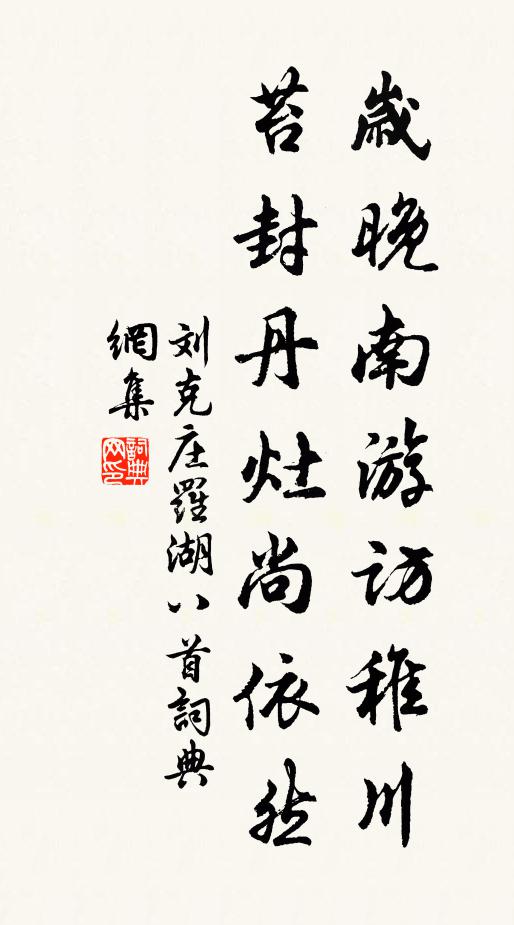 歲晚南游訪稚川
苔封丹灶尚依然
刘克庄羅湖八首詞典
網集
詞典網印